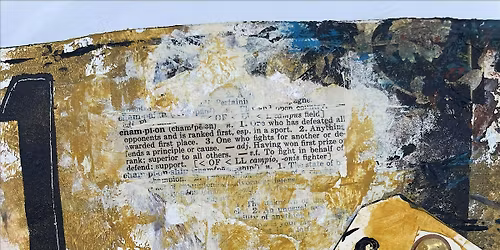 1
Pertaining
cham·pi·on (cham′pē·ən) n. 1. One who has defeated all
opponents and is ranked first, esp. in a sport. 2. Anything
awarded first place. 3. One who fights for another or de-
fends a principle or cause. — adj. Having won first prize o
rank; superior to all others. — v.t. To fight in behalf of
defend; support. [< OF < LL campio, -onis fighter]
1. The state of